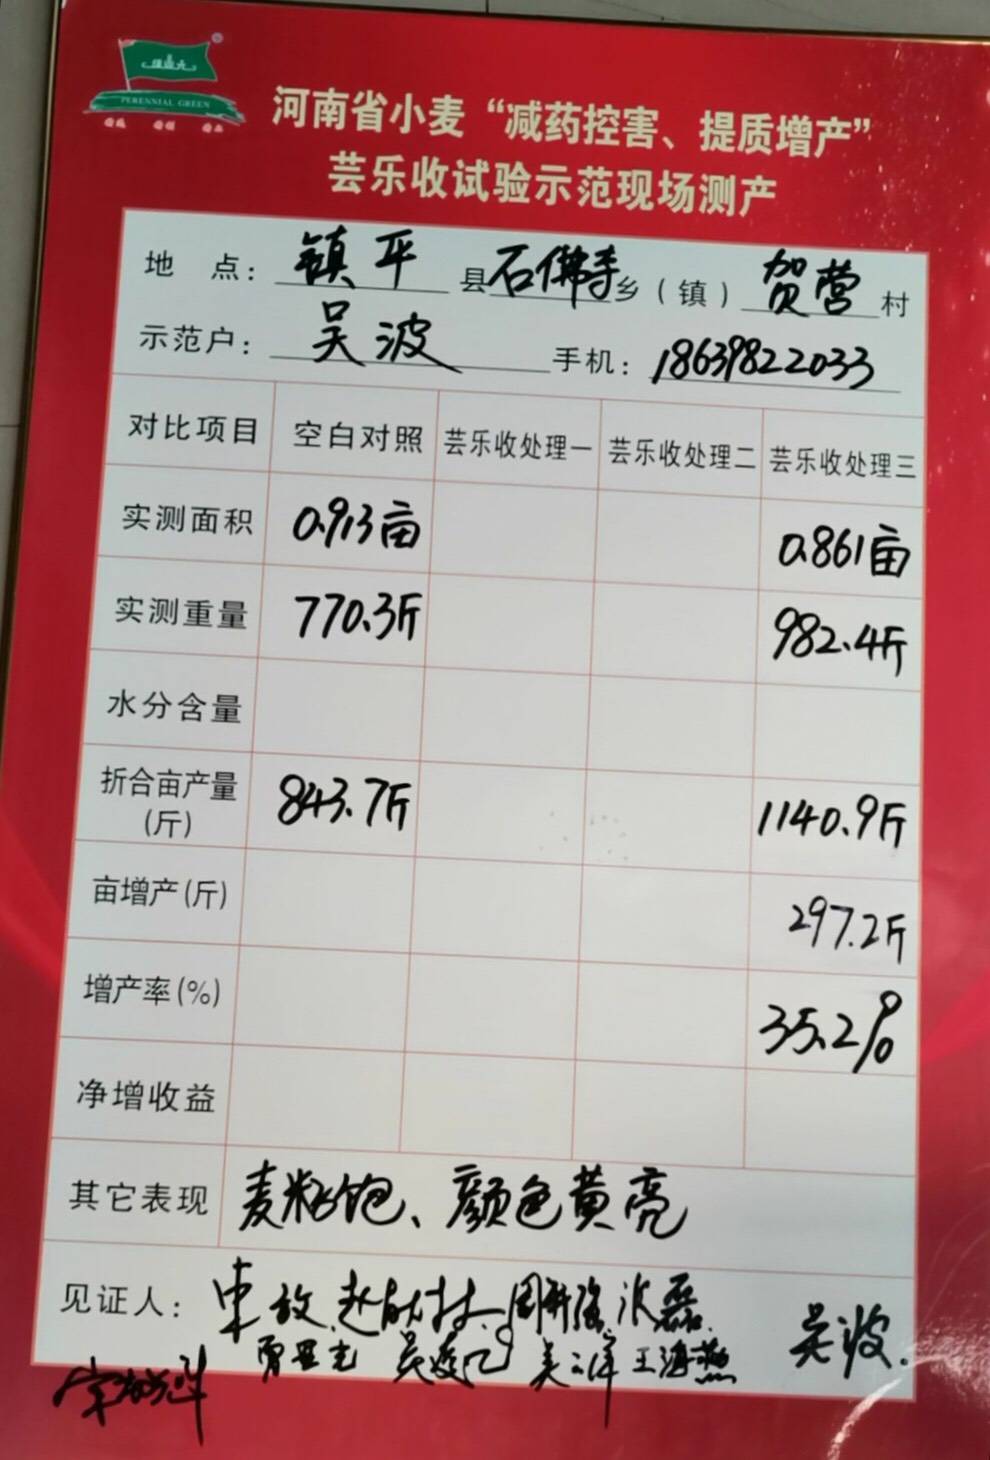 PERENNIAL GREEN
河南省小麦“减药控害、提质增产”
芸乐收试验示范现场测产
地 点: 镇平 县 石佛寺 乡(镇) 贺营 村
示范户: 吴波 手机: 18639822033
对比项目 空白对照 芸乐收处理一 芸乐收处理二 芸乐收处理三
实测面积 0.913亩 0.861亩
实测重量 770.3斤 982.4斤
水分含量
折合亩产量(斤) 843.7斤 1140.9斤
亩增产(斤) 297.2斤
增产率(%) 35.2%
净增收益
其它表现 麦粒饱、颜色黄亮
见证人: 吴波.
王海燕